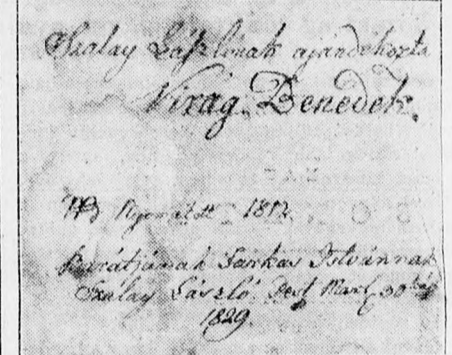 Szalay Lászlónak ajándékozta
Virág Benedek.
Nyomatott 1812.
Barátjának Farkas Istvánnak
Szálay László. Pest Mart. 30kán
1829.